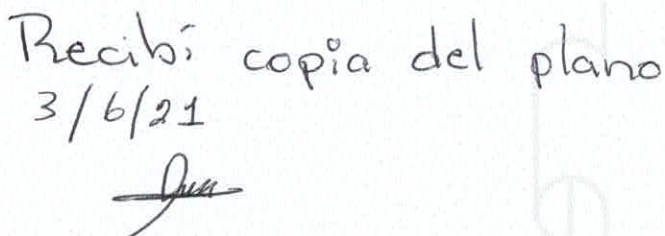 Recibí copia del plano
3/6/21